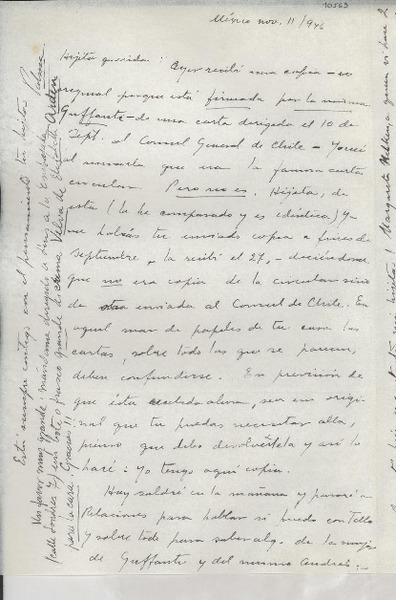 10569
México nov. 11/946
Hijita querida: Ayer recibí una copia - no
original porque está firmada por la misma
Guffanti - de una carta dirigida el 10 de
Sept. al Consul General de Chile -
al mandarla que era la famosa carta
circular. Pero no es. Hijita, de
esta (la he comparado y es idéntica) ya
me habías tu enviado copia a fines de
septiembre, la recibí el 27, - diciéndome
que no era copia de la circular sino
de otra enviada al Consul de Chile. En
aquel mar de papeles de tu casa las
cartas, sobre todo las que se parecen,
deben confundirse. En previsión de
que ésta recibida ahora, sea un origi-
nal que tu puedas necesitar allá,
pienso que debo devolvértela y así lo
haré: Yo tengo aquí copia.
Hoy saldré en la mañana y pasaré a
Relaciones para hablar si puedo con Tello
y sobre todo para saber alg. de la
de Guffanti y del mismo Andrés. -
Está siempre contigo en el pensamiento tu hijita Palma
Un favor muy grande: mándame dirigido a
(calle Londres 7) un bote, o frasco grande de crema Velva de Elizabeth Arden
para la cara. Gracias.
hijita! Margarita Michelena quien vi hace 2